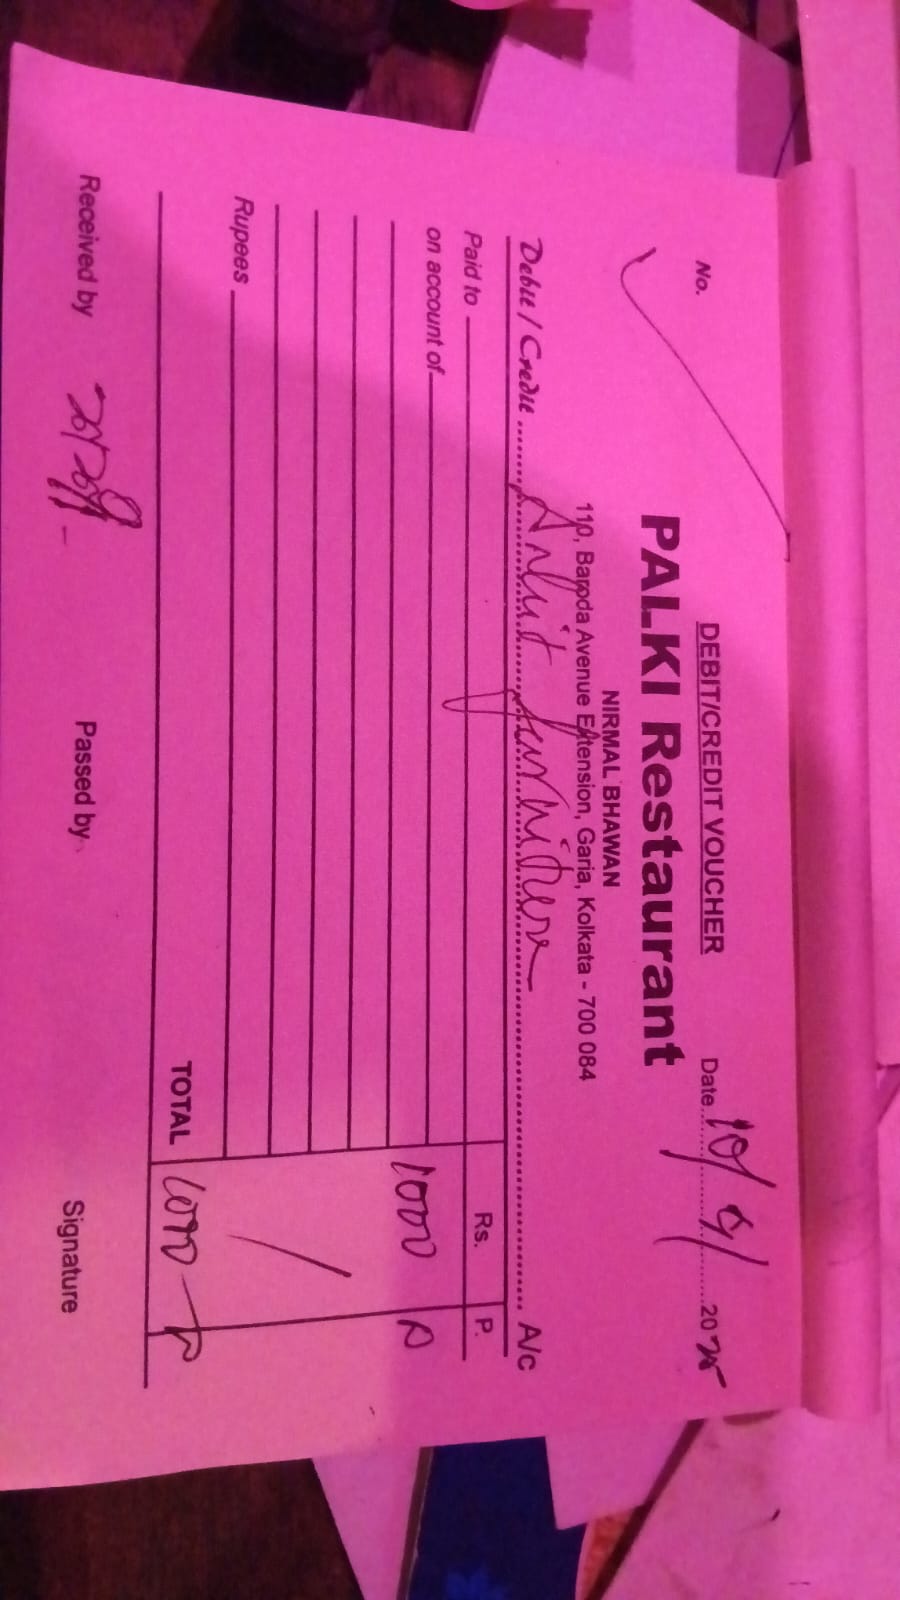 DEBIT/CREDIT VOUCHER
No. Date 10/9/2025
PALKI Restaurant
NIRMAL BHAWAN
110, Baroda Avenue Extension, Garia, Kolkata - 700 084
Debit / Credit Furniture A/c
Paid to Rs. P.
on account of
1000
Rupees
TOTAL 1000
Received by Passed by Signature